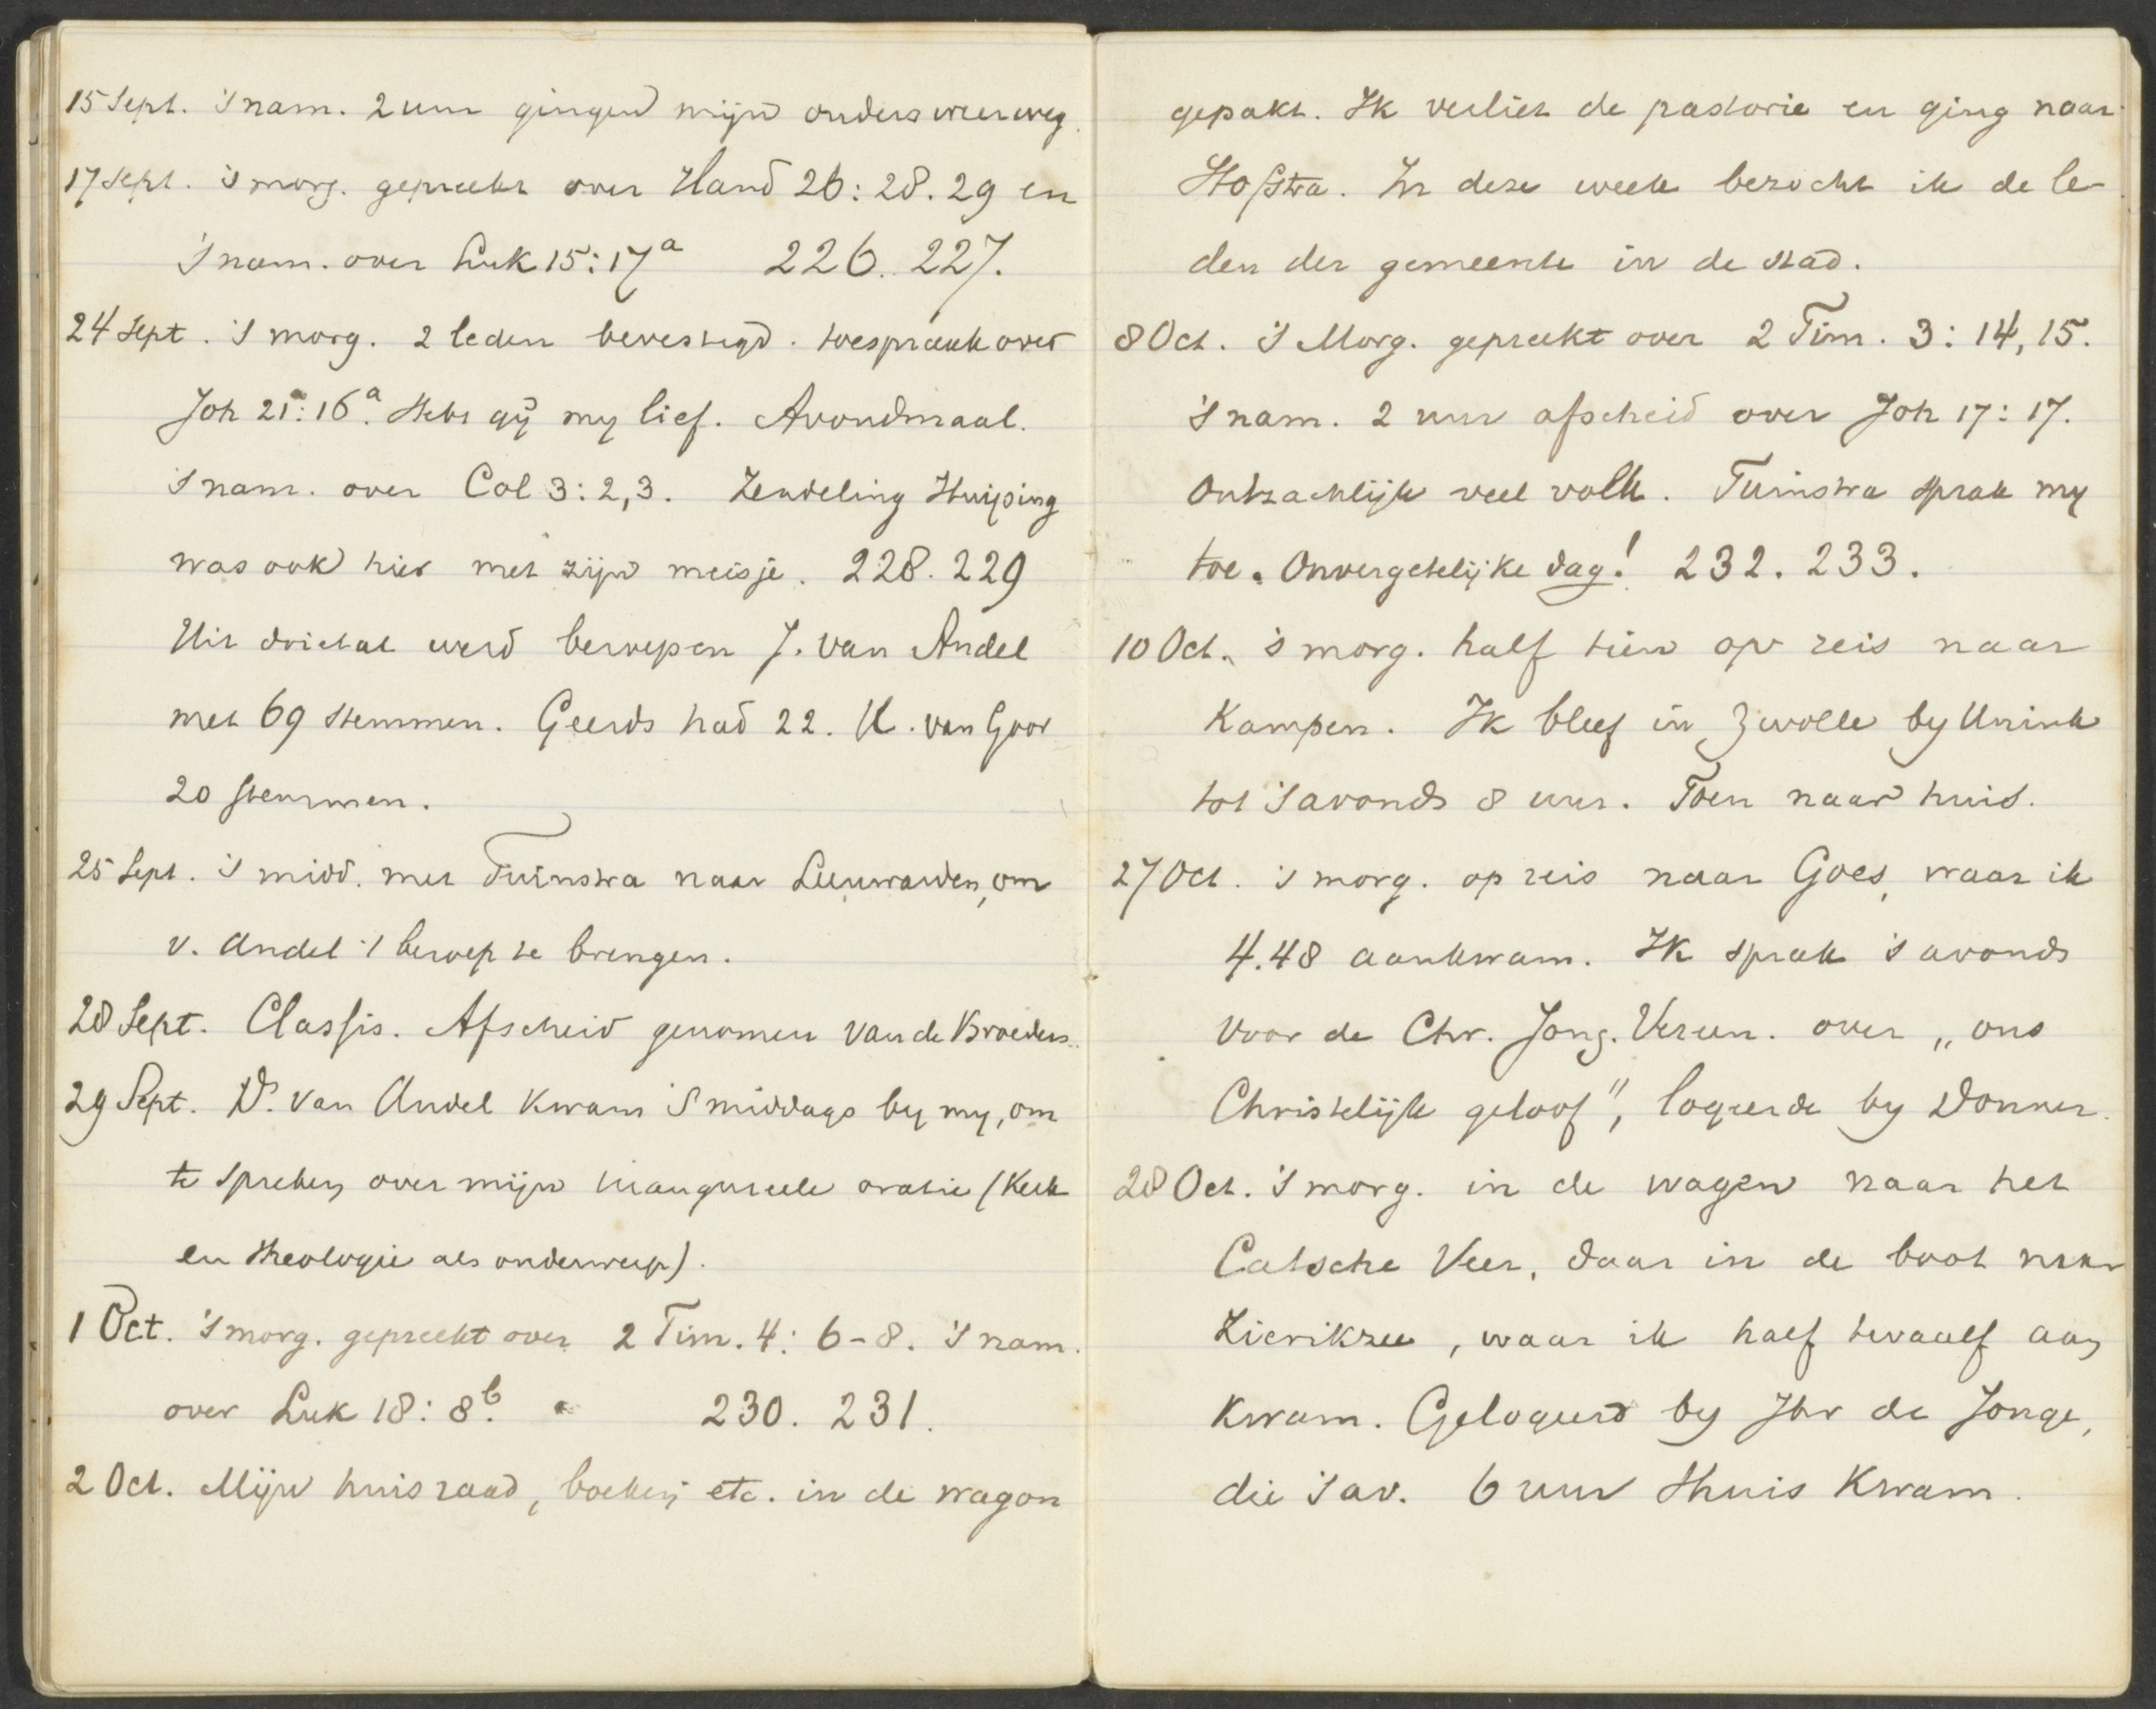 15 Sept. 's nam. 2 uur gingen mijn ouders weer weg.
17 Sept. 's morg. gepreekt over Hand 26: 28. 29 en
's nam. over Luk 15: 17a 226. 227.
24 Sept. 's morg. 2 leden bevestigd. toespraak over
Joh 21: 16a. Hebt gij my lief. Avondmaal.
's nam. over Col 3: 2, 3. Zendeling Huijsing
was ook hier met zijn meisje. 228. 229
Uit drietal werd beroepen J. van Andel
met 69 stemmen. Geerds had 22. K. van Goor
20 stemmen.
25 Sept. 's midd. met Tuinstra naar Leeuwarden, om
v. Andel 't beroep te brengen.
28 Sept. Classis. Afscheid genomen van de Broeders.
29 Sept. Ds. van Andel kwam 's middags by my, om
te spreken over mijn inaugureele oratie (Kerk
en theologie als onderwerp).
1 Oct. 's morg. gepreekt over 2 Tim. 4: 6-8. 's nam.
over Luk 18: 8b. 230. 231.
2 Oct. Mijn huisraad, boeken etc. in de wagon
gepakt. Ik verliet de pastorie en ging naar
Hofstra. In deze week bezocht ik de le-
den der gemeente in de stad.
8 Oct. 's Morg. gepreekt over 2 Tim. 3: 14, 15.
's nam. 2 uur afscheid over Joh 17: 17.
Ontzachlijk veel volk. Tuinstra sprak my
toe. Onvergetelijke dag! 232. 233.
10 Oct. 's morg. half tien op reis naar
Kampen. Ik bleef in Zwolle by Unink
tot 's avonds 8 uur. Toen naar huis.
27 Oct. 's morg. op reis naar Goes, waar ik
4.48 aankwam. Ik sprak 's avonds
voor de Chr. Jong. Vereen. over „ons
Christelijk geloof", logeerde by Donner.
28 Oct. 's morg. in de wagen naar het
Catsche Veer, daar in de boot naar
Zierikzee, waar ik half twaalf aan
kwam. Gelogeerd by Jhr de Jonge,
die 's av. 6 uur thuis kwam.